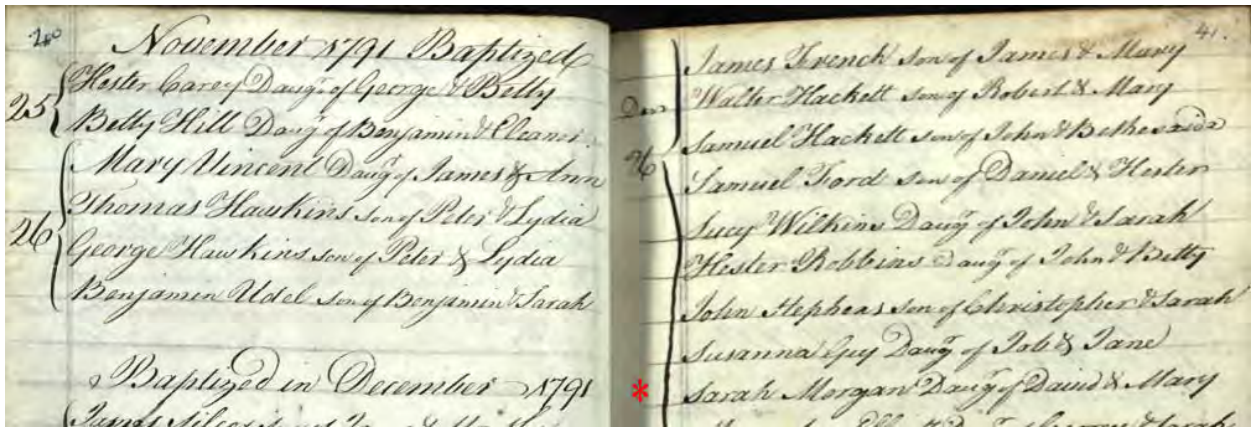 40
November 1791 Baptized
Hester Carey Daugr. of George & Betty
25
Betty Hill Daugr of Benjamin & Eleanor.
Mary Vincent Daugr of James & Ann
Thomas Hawkins son of Peter & Lydia
26
George Hawkins son of Peter & Lydia
Benjamin Udel son of Benjamin & Sarah
Baptized in December 1791
James
41.
James French son of James & Mary
Walter Hackett son of Robert & Mary
Samuel Hackett son of John & Bethesaida
26
Samuel Ford son of Daniel & Hester
Lucy Wilkins Daugr of John & Sarah
Hester Robbins Daugr of John & Betty
John Stephens son of Christopher & Sarah
Susanna Guy Daugr of Job & Jane
* Sarah Morgan Daugr of David & Mary